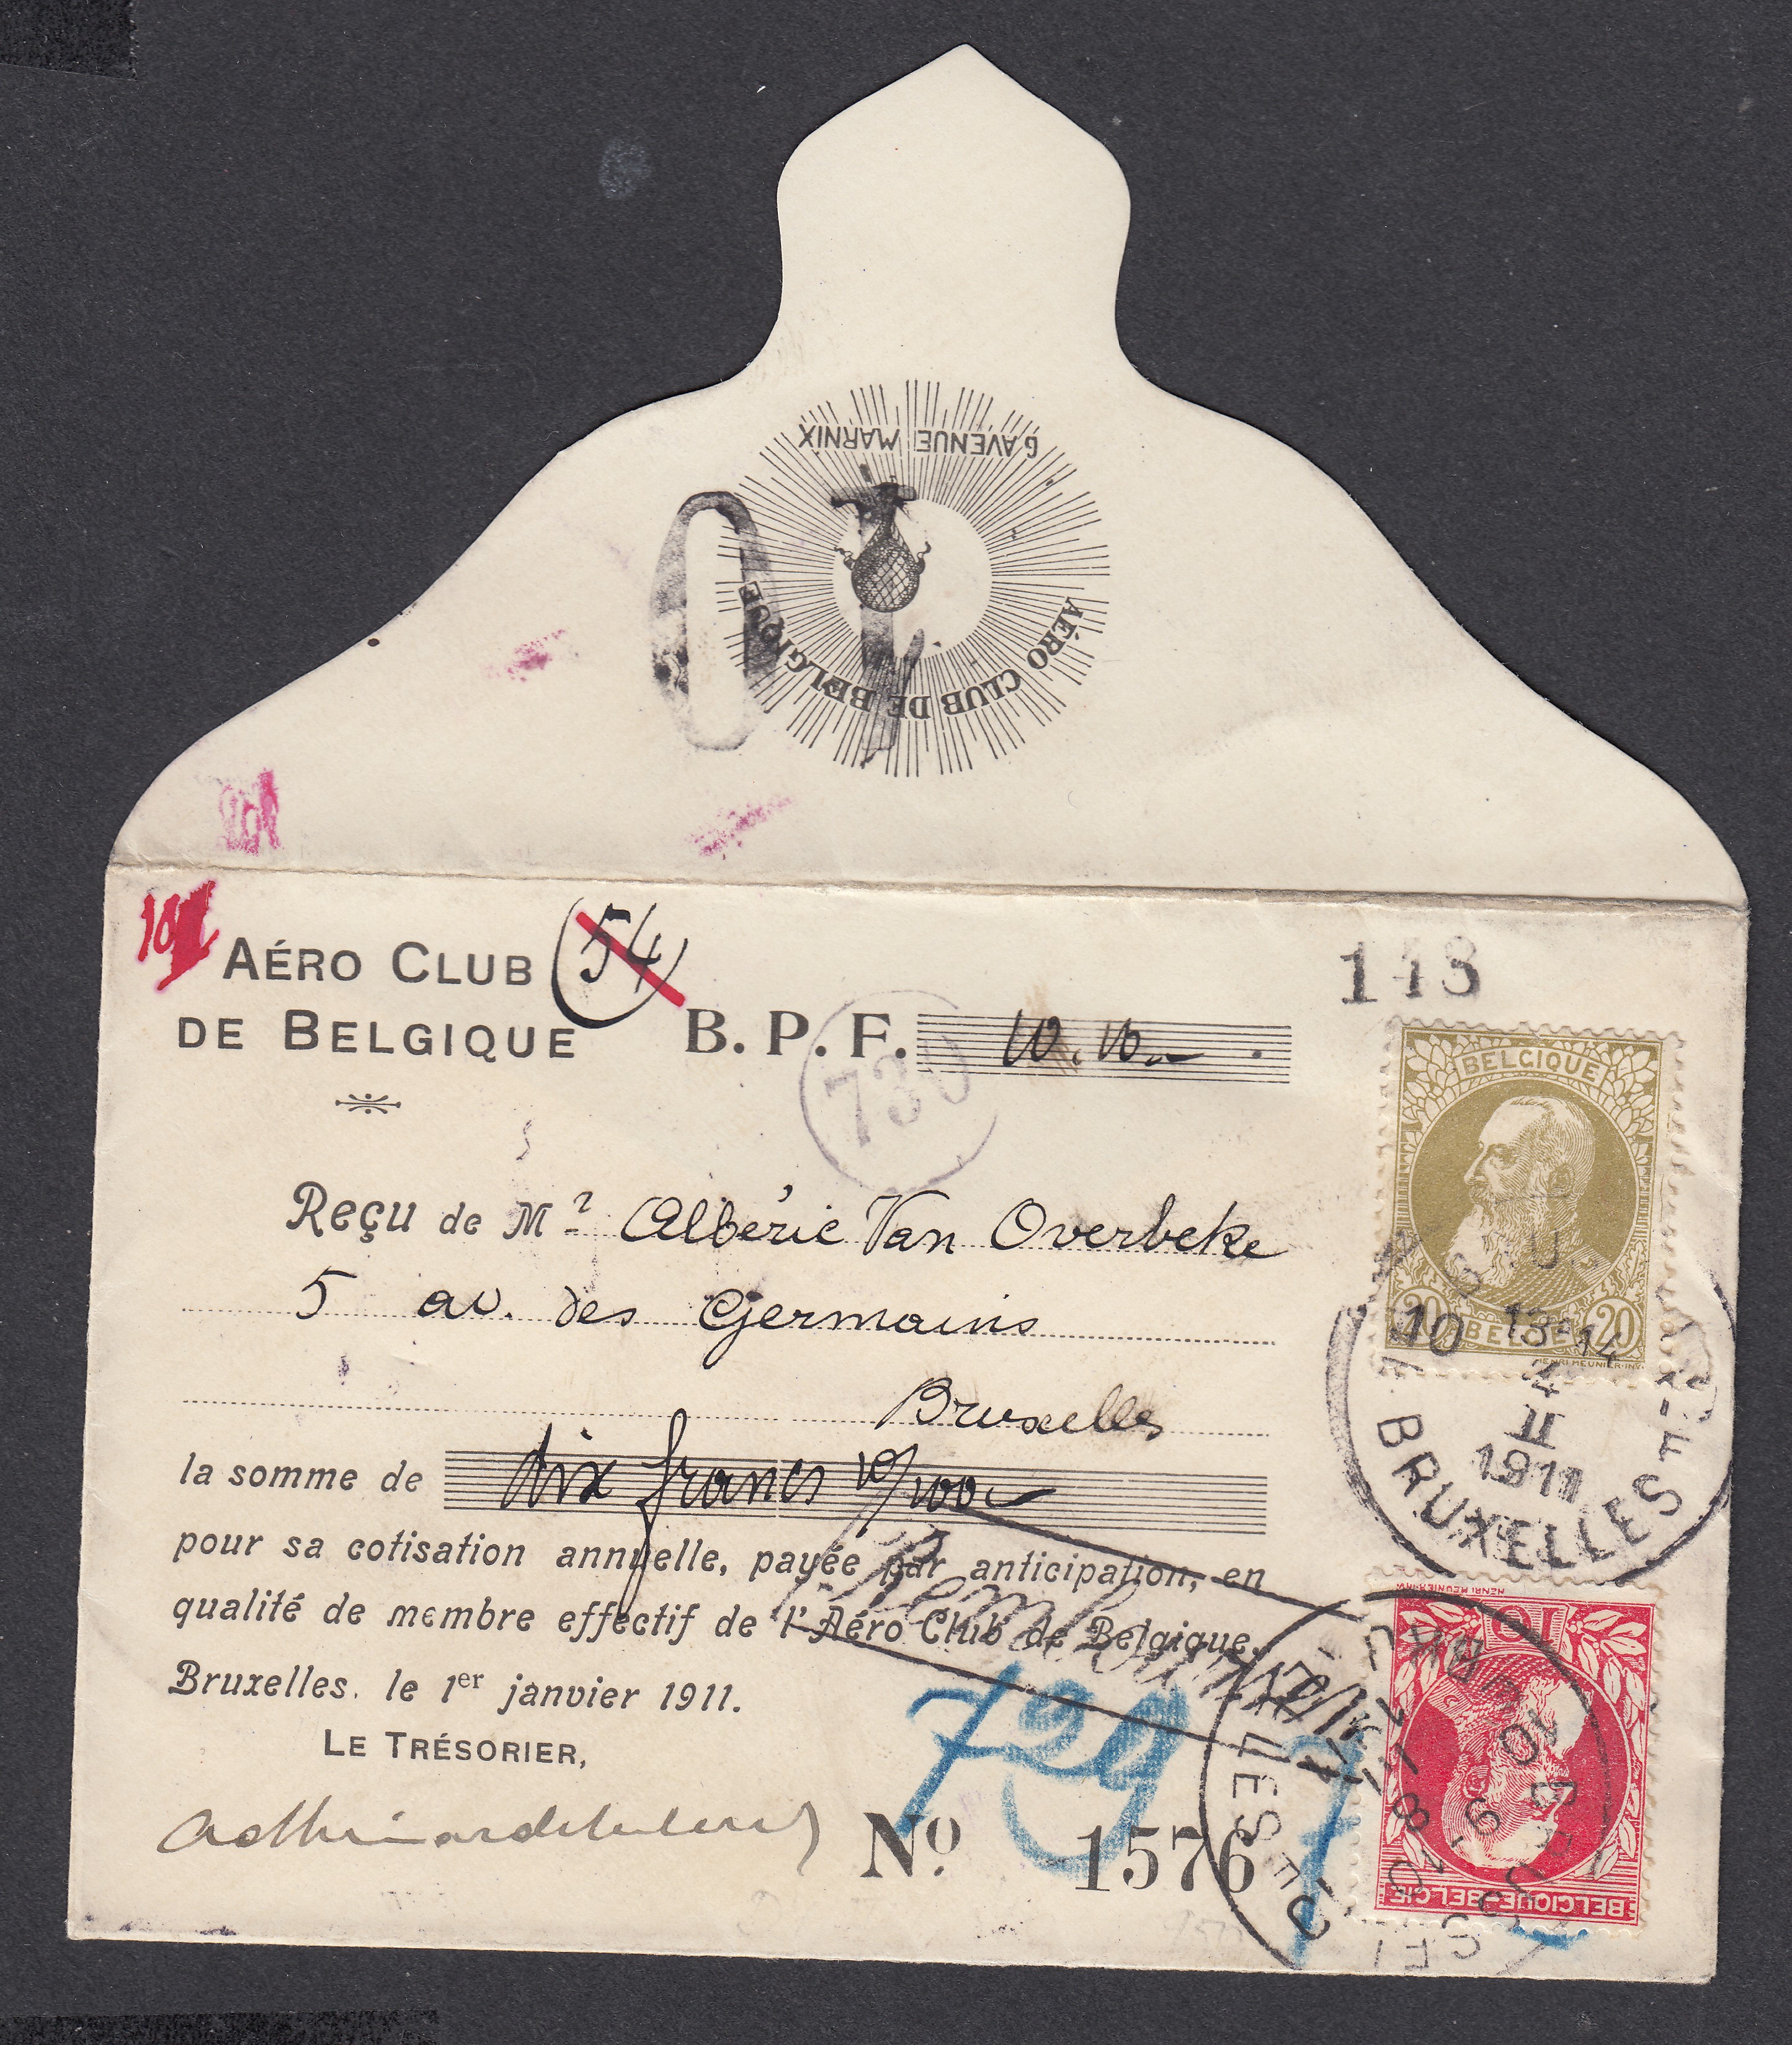 6 AVENUE MARNIX
AÉRO CLUB DE BELGIQUE
10
AÉRO CLUB
DE BELGIQUE
54
B. P. F. 10.10
730
143
Reçu de Mr Albéric Van Overbeke
5 av. des Germains
Bruxelles
la somme de dix francs 10/100
pour sa cotisation annuelle, payée par anticipation, en
qualité de membre effectif de l'Aéro Club de Belgique.
Bruxelles, le 1er janvier 1911.
LE TRÉSORIER,
729
No. 1576
BELGIQUE
20 BELGIË 20
HENRI MEUNIER·INV.
10 13-14
4
II
1911
BRUXELLES
HENRI MEUNIER INV
10
BELGIQUE-BELGIË